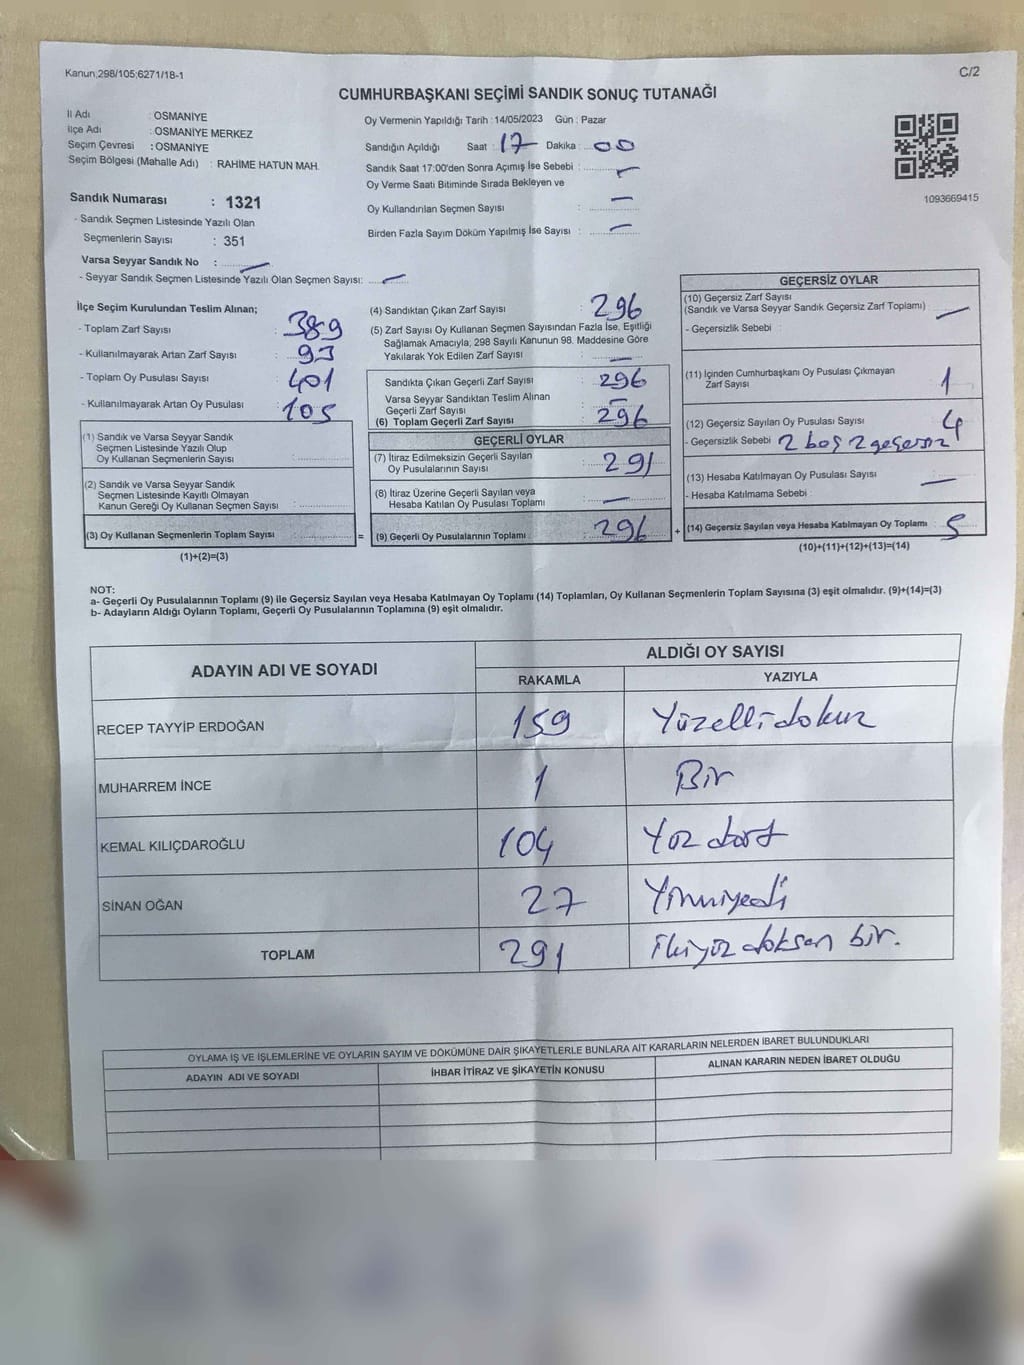 Kanun;298/105;6271/18-1
C/2
CUMHURBAŞKANI SEÇİMİ SANDIK SONUÇ TUTANAĞI
İl Adı : OSMANİYE
İlçe Adı : OSMANİYE MERKEZ
Seçim Çevresi : OSMANİYE
Seçim Bölgesi (Mahalle Adı) : RAHİME HATUN MAH.
Oy Vermenin Yapıldığı Tarih : 14/05/2023 Gün : Pazar
Sandığın Açıldığı Saat : 17 Dakika : 00
Sandık Saat 17:00'den Sonra Açımış İse Sebebi : -
Oy Verme Saati Bitiminde Sırada Bekleyen ve
Oy Kullandırılan Seçmen Sayısı : -
Birden Fazla Sayım Döküm Yapılmış İse Sayısı : -
1093669415
Sandık Numarası : 1321
- Sandık Seçmen Listesinde Yazılı Olan
Seçmenlerin Sayısı : 351
Varsa Seyyar Sandık No : -
- Seyyar Sandık Seçmen Listesinde Yazılı Olan Seçmen Sayısı: -
İlçe Seçim Kurulundan Teslim Alınan;
- Toplam Zarf Sayısı : 389
- Kullanılmayarak Artan Zarf Sayısı : 93
- Toplam Oy Pusulası Sayısı : 401
- Kullanılmayarak Artan Oy Pusulası : 105
(1) Sandık ve Varsa Seyyar Sandık
Seçmen Listesinde Yazılı Olup
Oy Kullanan Seçmenlerin Sayısı :
(2) Sandık ve Varsa Seyyar Sandık
Seçmen Listesinde Kayıtlı Olmayan
Kanun Gereği Oy Kullanan Seçmen Sayısı :
(3) Oy Kullanan Seçmenlerin Toplam Sayısı : =
(1)+(2)=(3)
(4) Sandıktan Çıkan Zarf Sayısı : 296
(5) Zarf Sayısı Oy Kullanan Seçmen Sayısından Fazla İse, Eşitliği
Sağlamak Amacıyla; 298 Sayılı Kanunun 98. Maddesine Göre
Yakılarak Yok Edilen Zarf Sayısı : -
Sandıkta Çıkan Geçerli Zarf Sayısı : 296
Varsa Seyyar Sandıktan Teslim Alınan
Geçerli Zarf Sayısı : -
(6) Toplam Geçerli Zarf Sayısı : 296
GEÇERLİ OYLAR
(7) İtiraz Edilmeksizin Geçerli Sayılan
Oy Pusulalarının Sayısı : 291
(8) İtiraz Üzerine Geçerli Sayılan veya
Hesaba Katılan Oy Pusulası Toplamı : -
(9) Geçerli Oy Pusulalarının Toplamı : 296 +
GEÇERSİZ OYLAR
(10) Geçersiz Zarf Sayısı
(Sandık ve Varsa Seyyar Sandık Geçersiz Zarf Toplamı) : -
- Geçersizlik Sebebi :
(11) İçinden Cumhurbaşkanı Oy Pusulası Çıkmayan
Zarf Sayısı : 1
(12) Geçersiz Sayılan Oy Pusulası Sayısı : 4
- Geçersizlik Sebebi : 2 boş 2 geçersiz
(13) Hesaba Katılmayan Oy Pusulası Sayısı : -
- Hesaba Katılmama Sebebi :
(14) Geçersiz Sayılan veya Hesaba Katılmayan Oy Toplamı : 5
(10)+(11)+(12)+(13)=(14)
NOT:
a- Geçerli Oy Pusulalarının Toplamı (9) ile Geçersiz Sayılan veya Hesaba Katılmayan Oy Toplamı (14) Toplamları, Oy Kullanan Seçmenlerin Toplam Sayısına (3) eşit olmalıdır. (9)+(14)=(3)
b- Adayların Aldığı Oyların Toplamı, Geçerli Oy Pusulalarının Toplamına (9) eşit olmalıdır.
ADAYIN ADI VE SOYADI
ALDIĞI OY SAYISI
RAKAMLA YAZIYLA
RECEP TAYYİP ERDOĞAN 159 Yüzellidokuz
MUHARREM İNCE 1 Bir
KEMAL KILIÇDAROĞLU 104 Yüz dört
SİNAN OĞAN 27 Yirmiyedi
TOPLAM 291 İkiyüz doksan bir.
OYLAMA İŞ VE İŞLEMLERİNE VE OYLARIN SAYIM VE DÖKÜMÜNE DAİR ŞİKAYETLERLE BUNLARA AİT KARARLARIN NELERDEN İBARET BULUNDUKLARI
ADAYIN ADI VE SOYADI İHBAR İTİRAZ VE ŞİKAYETİN KONUSU ALINAN KARARIN NEDEN İBARET OLDUĞU